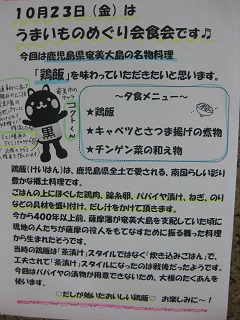 10月23日（金）は
うまいものめぐり会食会です♫
今回は鹿児島県奄美大島の名物料理
「鶏飯」を味わっていただきたいと思います。
～夕食メニュー～
★鶏飯
★キャベツとさつま揚げの煮物
★チンゲン菜の和え物
黒
鶏飯（けいはん）は、鹿児島県全土で愛される、南国らしい彩り
豊かな郷土料理です。
ごはんの上にほぐした鶏肉、錦糸卵、パパイヤ漬け、ねぎ、のり
などの具材を盛り付け、だし汁をかけて頂きます。
今から400年以上前、薩摩藩が奄美大島を支配していた頃に
現地の人たちが薩摩の役人をもてなすために振る舞った料理
から生まれたそうです。
当時の鶏飯は「茶漬け」スタイルではなく「炊き込みごはん」で、
工夫されて「茶漬け」スタイルになったのは戦後だったようです。
今回はパパイヤの漬物が用意できないため、大根のたくあんを
使います。
♡だしが効いたおいしい鶏飯♡　お楽しみに～！